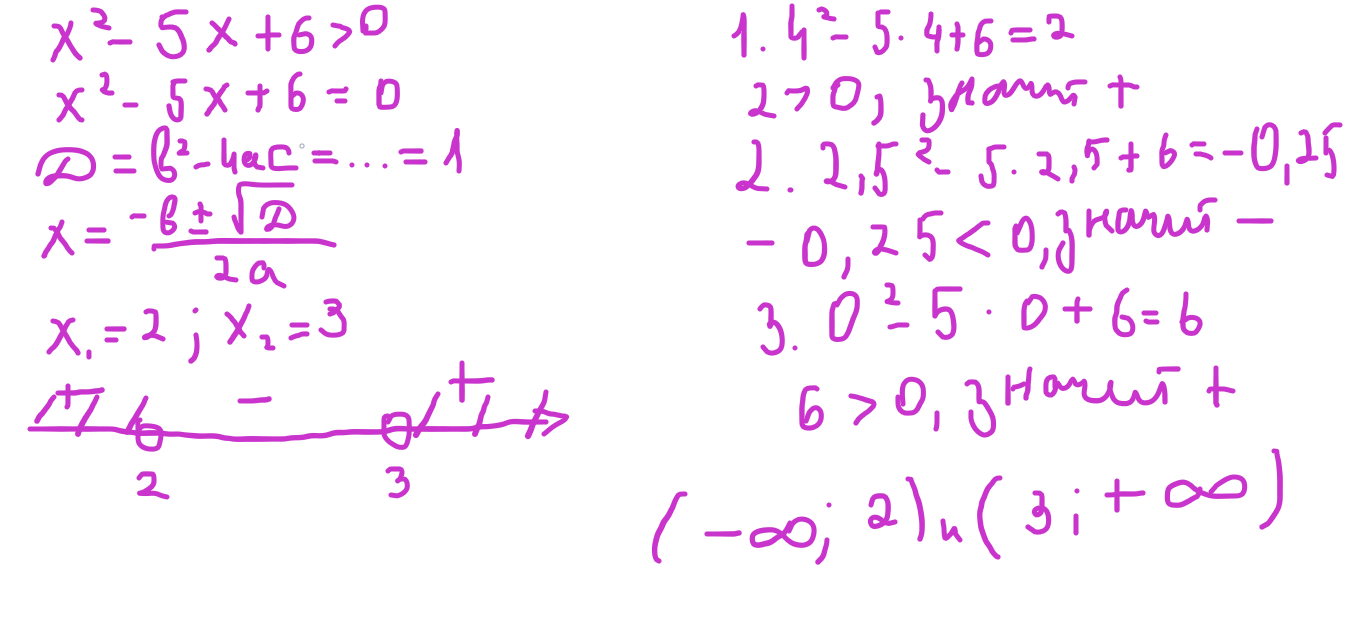 x² - 5x + 6 > 0
x² - 5x + 6 = 0
D = b² - 4ac = .... = 1
x = (-b ± √D) / 2a
x₁ = 2 ; x₂ = 3
+ - +
2 3
1. 4² - 5 · 4 + 6 = 2
2 > 0, значит +
2. 2,5² - 5 · 2,5 + 6 = -0,25
- 0,25 < 0, значит -
3. 0² - 5 · 0 + 6 = 6
6 > 0, значит +
(-∞; 2) и (3; +∞)